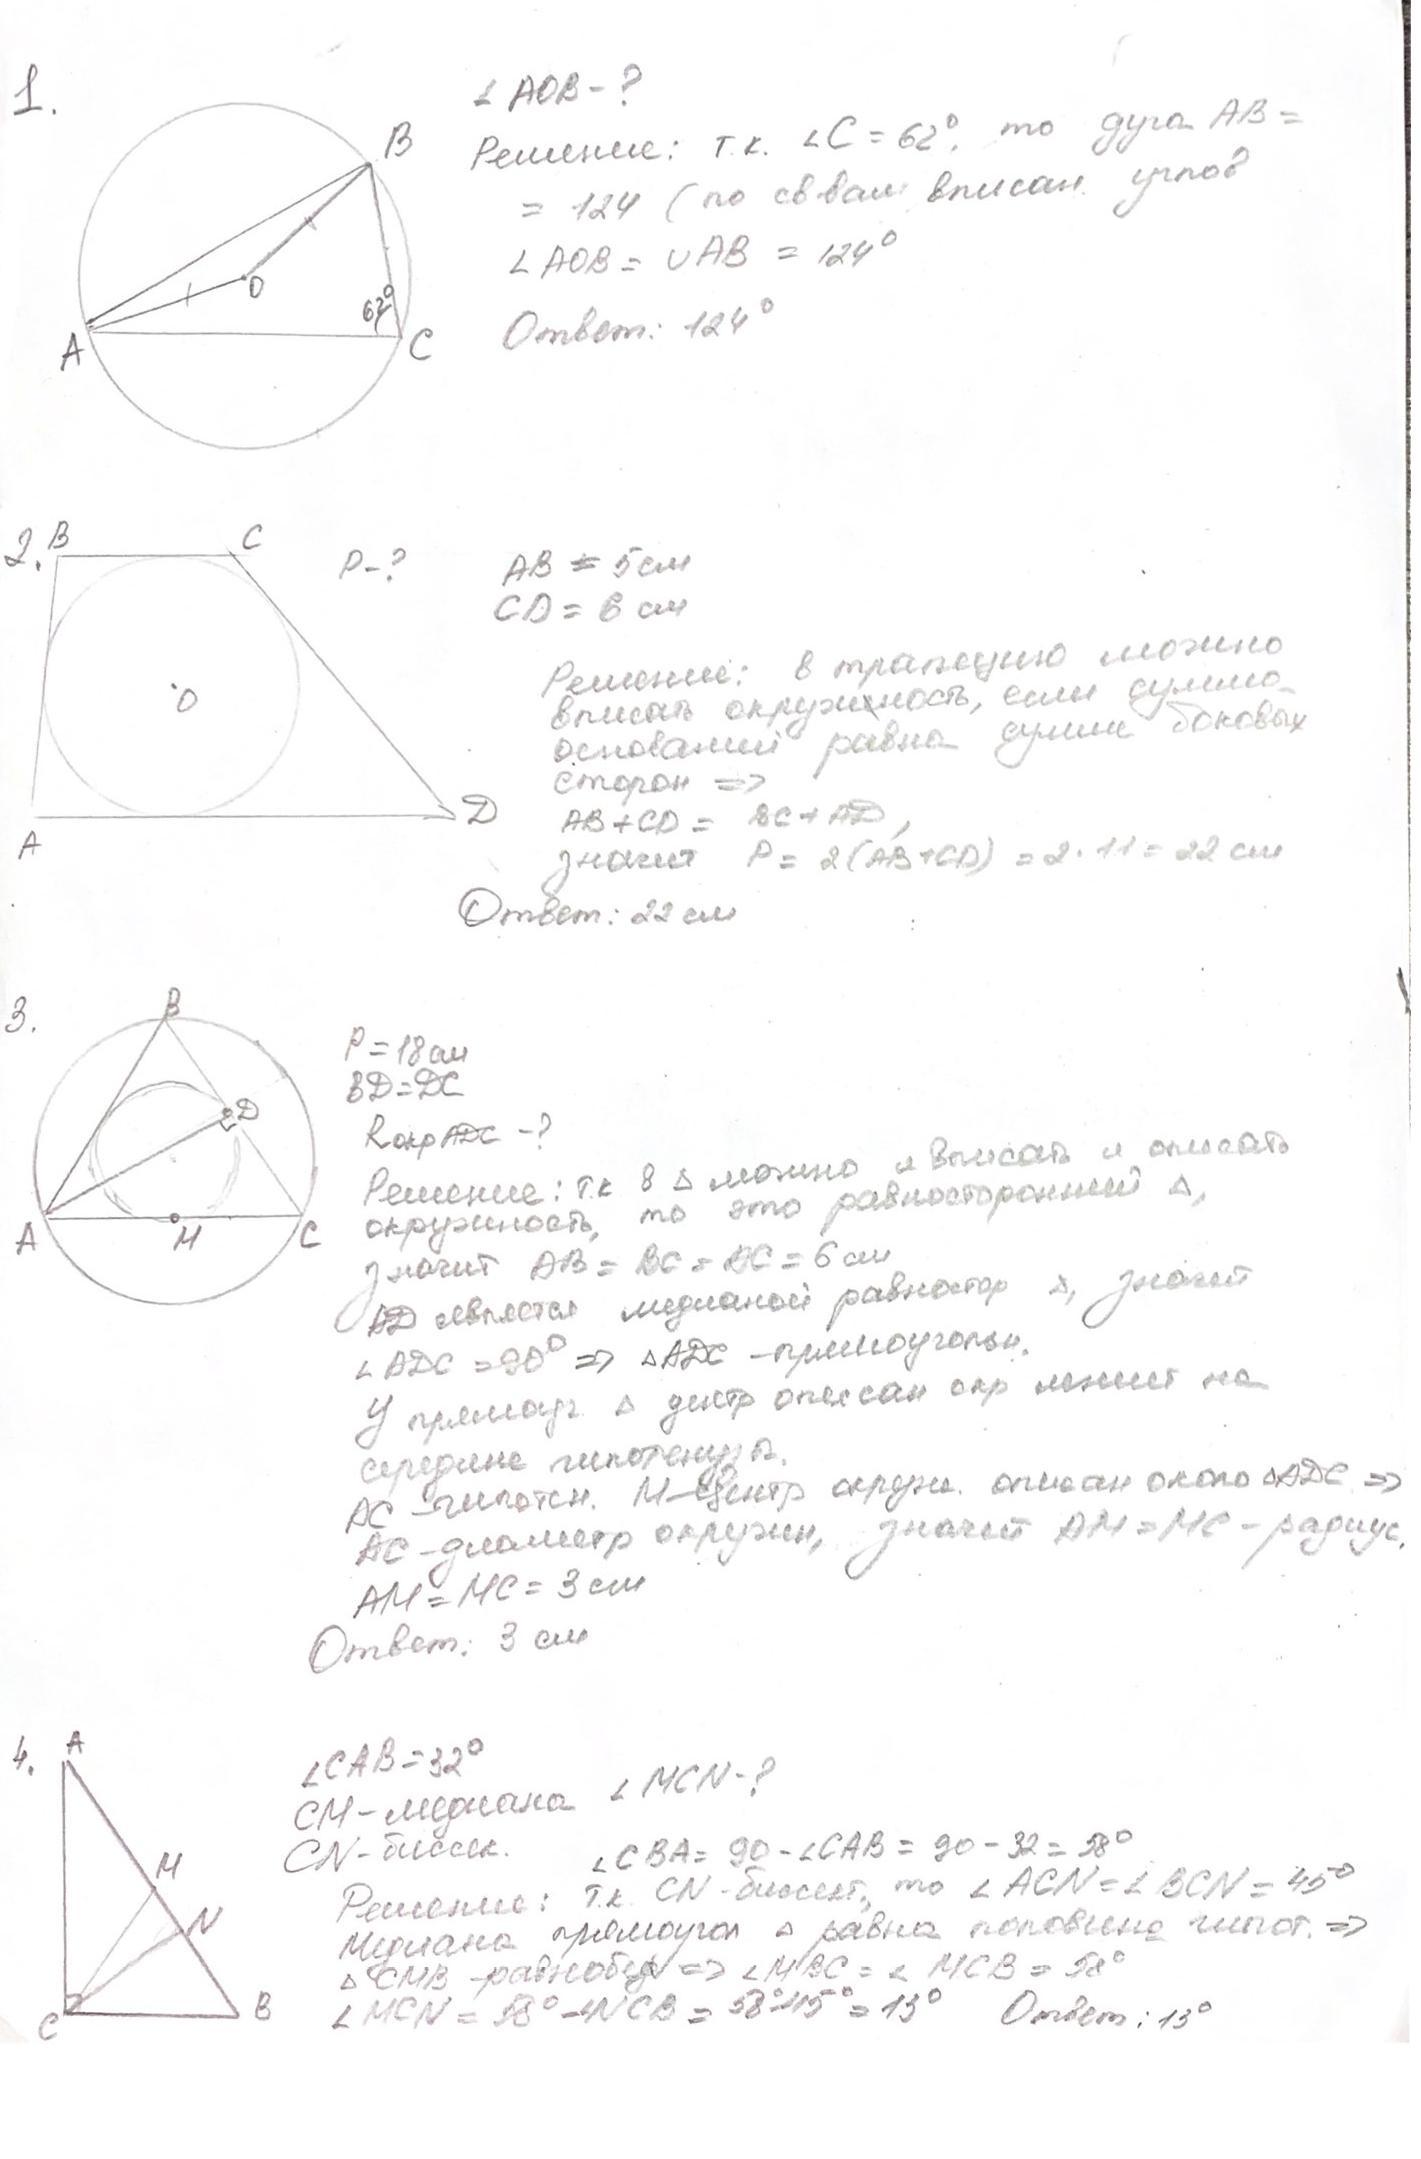 1.
∠AOB - ?
B
Решение: т.к. ∠C = 62°, то дуга AB =
= 124 (по св вам вписан. углов
∠AOB = ∪AB = 124°
O
62°
Ответ: 124°
A
C
2.
B
C
P - ?
AB = 5 см
CD = 6 см
O
Решение: в трапецию можно
вписать окружность, если сумма
оснований равна сумме боковых
сторон =>
A
D
AB + CD = BC + AD,
значит P = 2(AB+CD) = 2·11 = 22 см
Ответ: 22 см
3.
B
P = 18 см
BD = DC
D
R окр ADC - ?
A
M
C
Решение: т.к в △ можно и вписать и описать
окружность, то это равносторонний △,
значит AB = BC = AC = 6 см
AD является медианой равностор △, значит
∠ADC = 90° => △ADC - прямоугольн.
У прямоуг. △ центр описан окр лежит на
середине гипотенузы.
AC - гипотен. M - центр окруж. описан около △ADC =>
AC - диаметр окружн, значит AM = MC - радиус.
AM = MC = 3 см
Ответ: 3 см
4.
A
∠CAB = 32°
CM - медиана ∠MCN - ?
CN - биссек.
∠CBA = 90 - ∠CAB = 90 - 32 = 58°
M
N
C
B
Решение: т.к. CN - биссект, то ∠ACN = ∠BCN = 45°
Медиана прямоугол △ равна половине гипот. =>
△CMB - равнобедр => ∠MBC = ∠MCB = 58°
∠MCN = 58° - ∠NCB = 58° - 45° = 13° Ответ: 13°